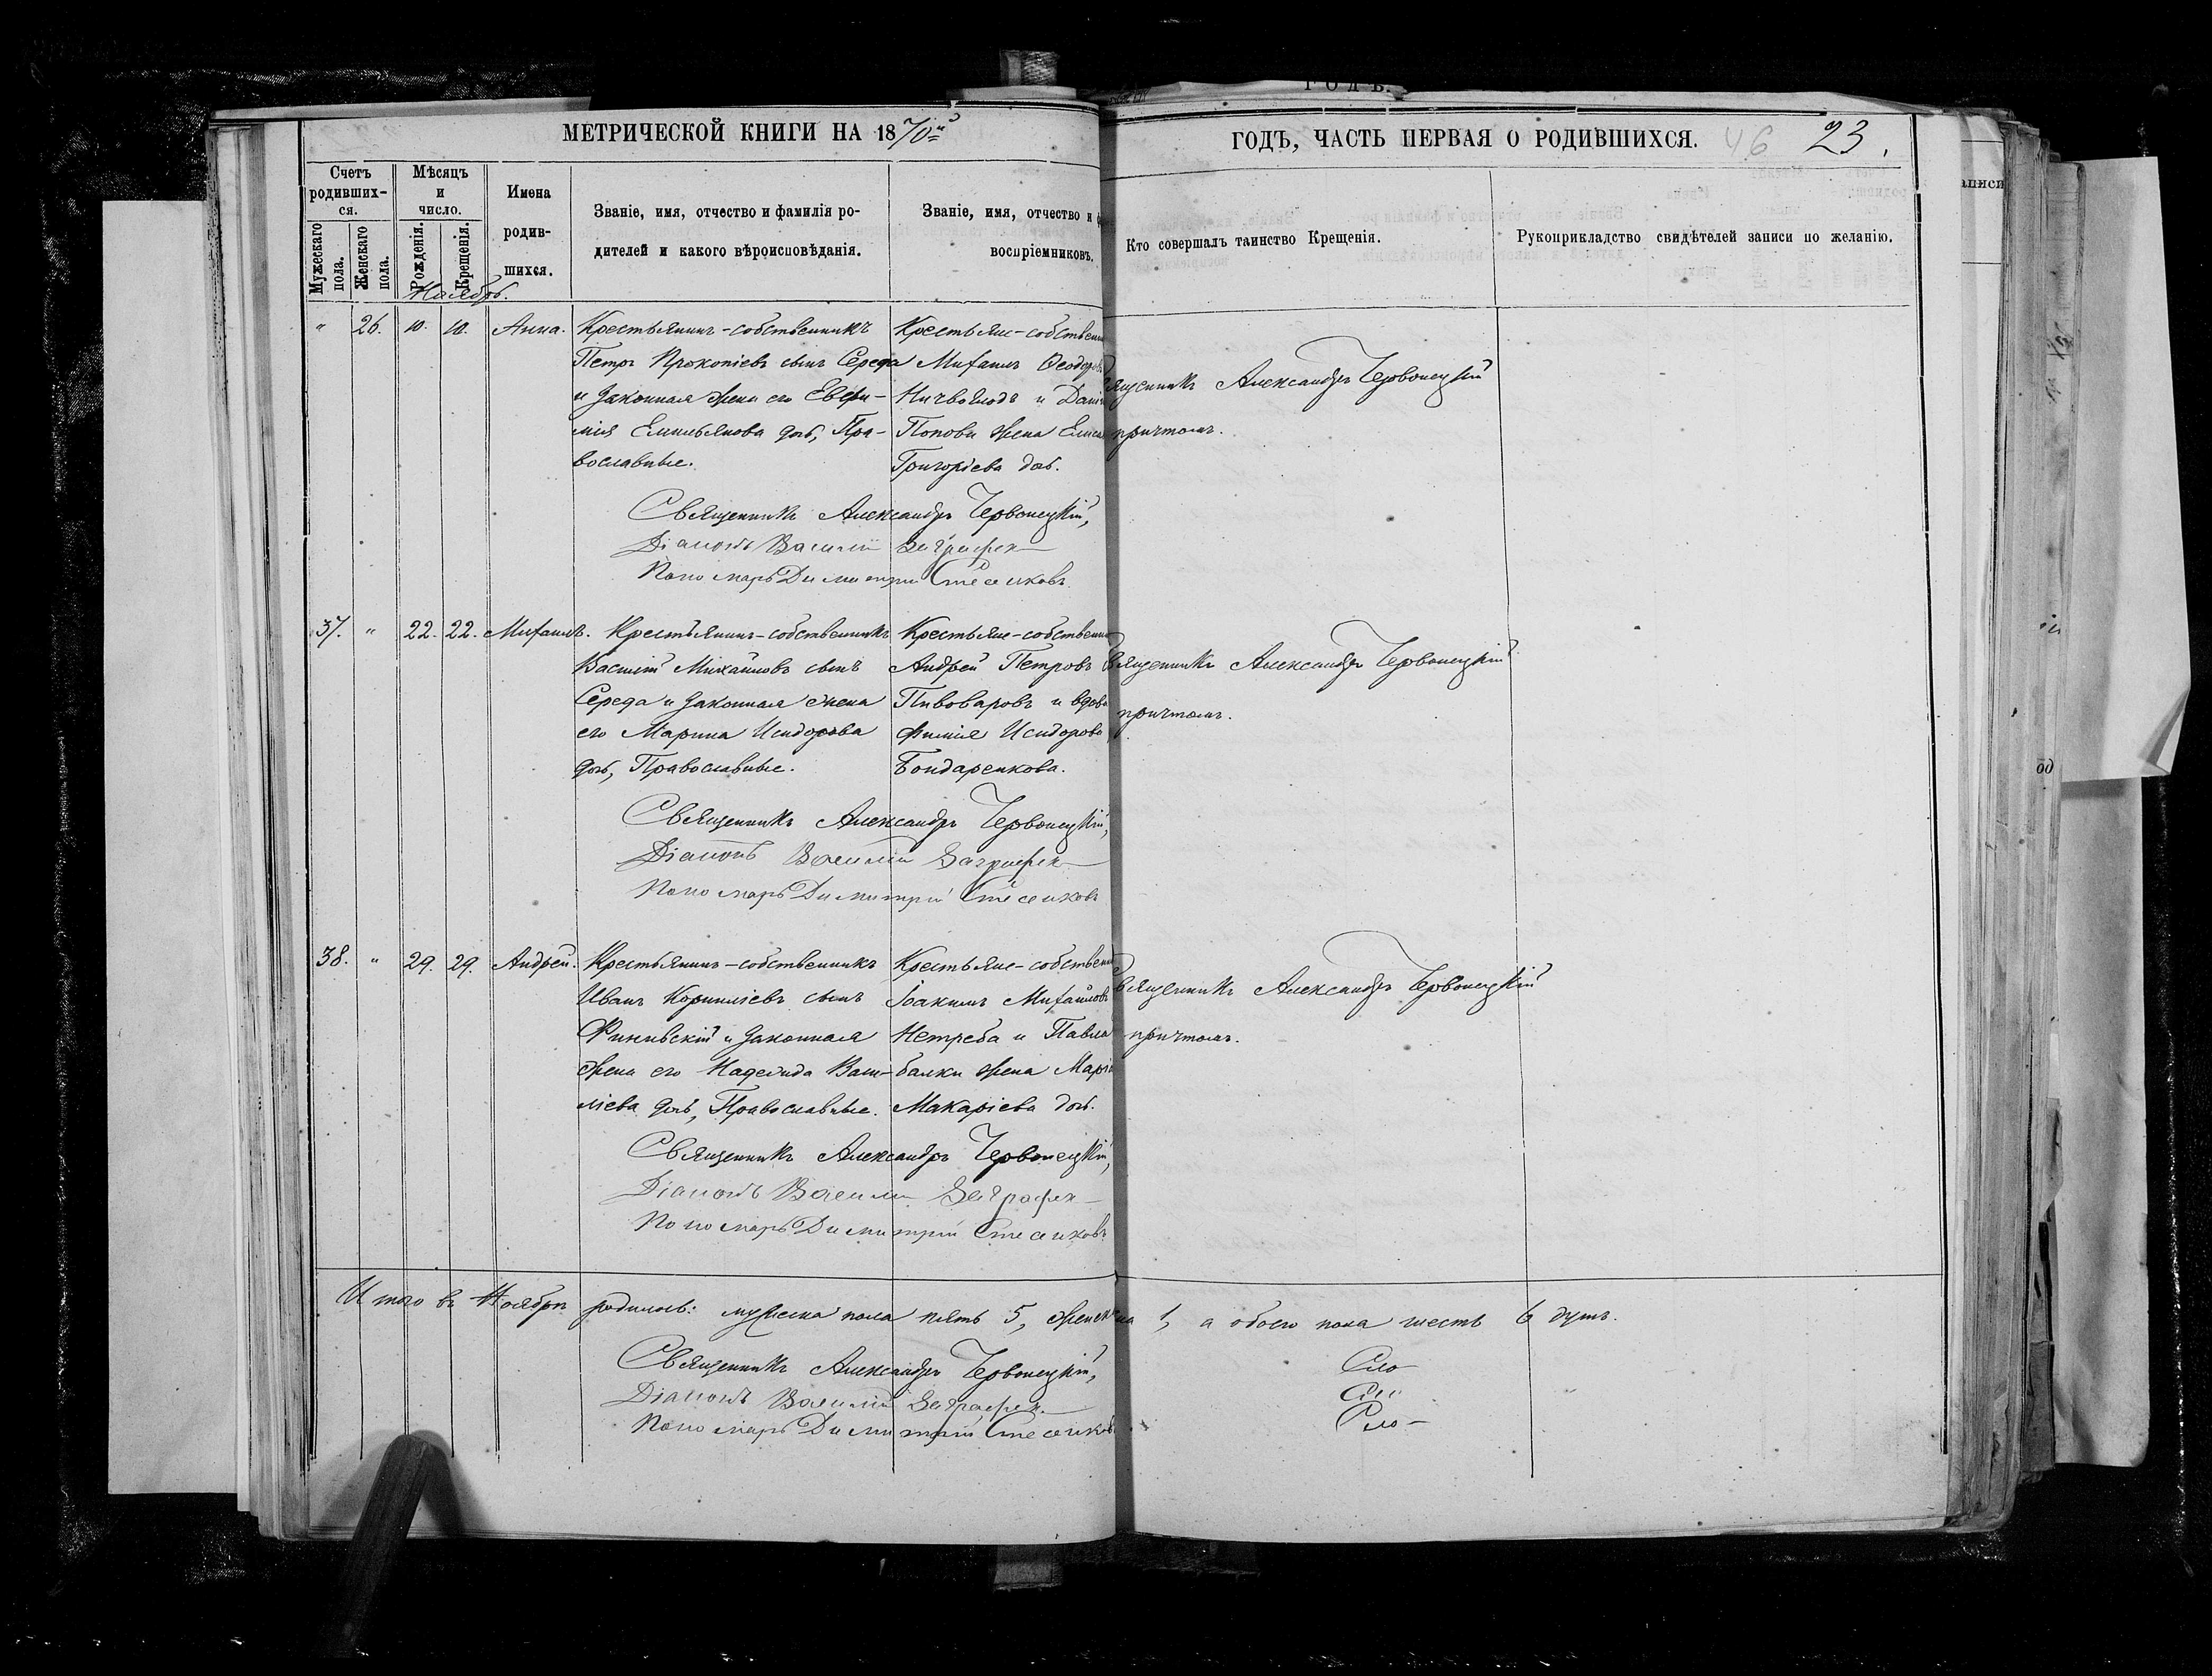 РОДѢ.
МЕТРИЧЕСКОЙ КНИГИ НА 1870й
ГОДЪ, ЧАСТЬ ПЕРВАЯ О РОДИВШИХСЯ. 46 23.
Счетъ родивших-ся.
Мужескаго пола.
Женскаго пола.
Мѣсяцъ и число.
Рожденія.
Крещенія.
Имена родив-шихся.
Званіе, имя, отчество и фамилія ро-
дителей и какого вѣроисповѣданія.
Званіе, имя, отчество и ф
воспріемниковъ.
Кто совершалъ таинство Крещенія.
Рукоприкладство свидѣтелей записи по желанію.
Ноябрь.
" 26. 10. 10. Анна. Крестьянинъ-собственникъ
Петръ Прокопіевъ сынъ Середа
и законная жена его Евфи-
мія Емильянова дочь, Пра-
вославные.
Крестьяне-собственни
Михаилъ Ѳеодоровъ
Ничволодъ и Дани
Попова жена Елиса
Григоріева дочь.
вященникъ Александръ Червонецкій
причтомъ.
Священникъ Александръ Червонецкій,
Діаконъ Василій
Пономарь Димитрій
37. " 22. 22. Михаилъ. Крестьянинъ-собственникъ
Василій Михайловъ сынъ
Середа и законная жена
его Марина Исидорова
дочь, Православные.
Крестьяне-собственни
Андрей Петровъ
Пивоваровъ и вдова
фимія Исидорова
Бондаренкова.
вященникъ Александръ Червонецкій
причтомъ.
Священникъ Александръ Червонецкій,
Діаконъ Василій
Пономарь Димитрій
38. " 29. 29. Андрей. Крестьянинъ-собственникъ
Иванъ Корниліевъ сынъ
и законная
жена его Надежда Васи-
ліева дочь, Православные.
Крестьяне-собственни
Іоакимъ Михайловъ
Нетреба и Павла
балки жена Марія
Макаріева дочь.
вященникъ Александръ Червонецкій
причтомъ.
Священникъ Александръ Червонецкій,
Діаконъ Василій
Пономарь Димитрій
Итого въ Ноябрѣ родилось: мужеска пола пять 5, женска 1, а обоего пола шесть 6 душъ.
Священникъ Александръ Червонецкій,
Діаконъ Василій
Пономарь Димитрій